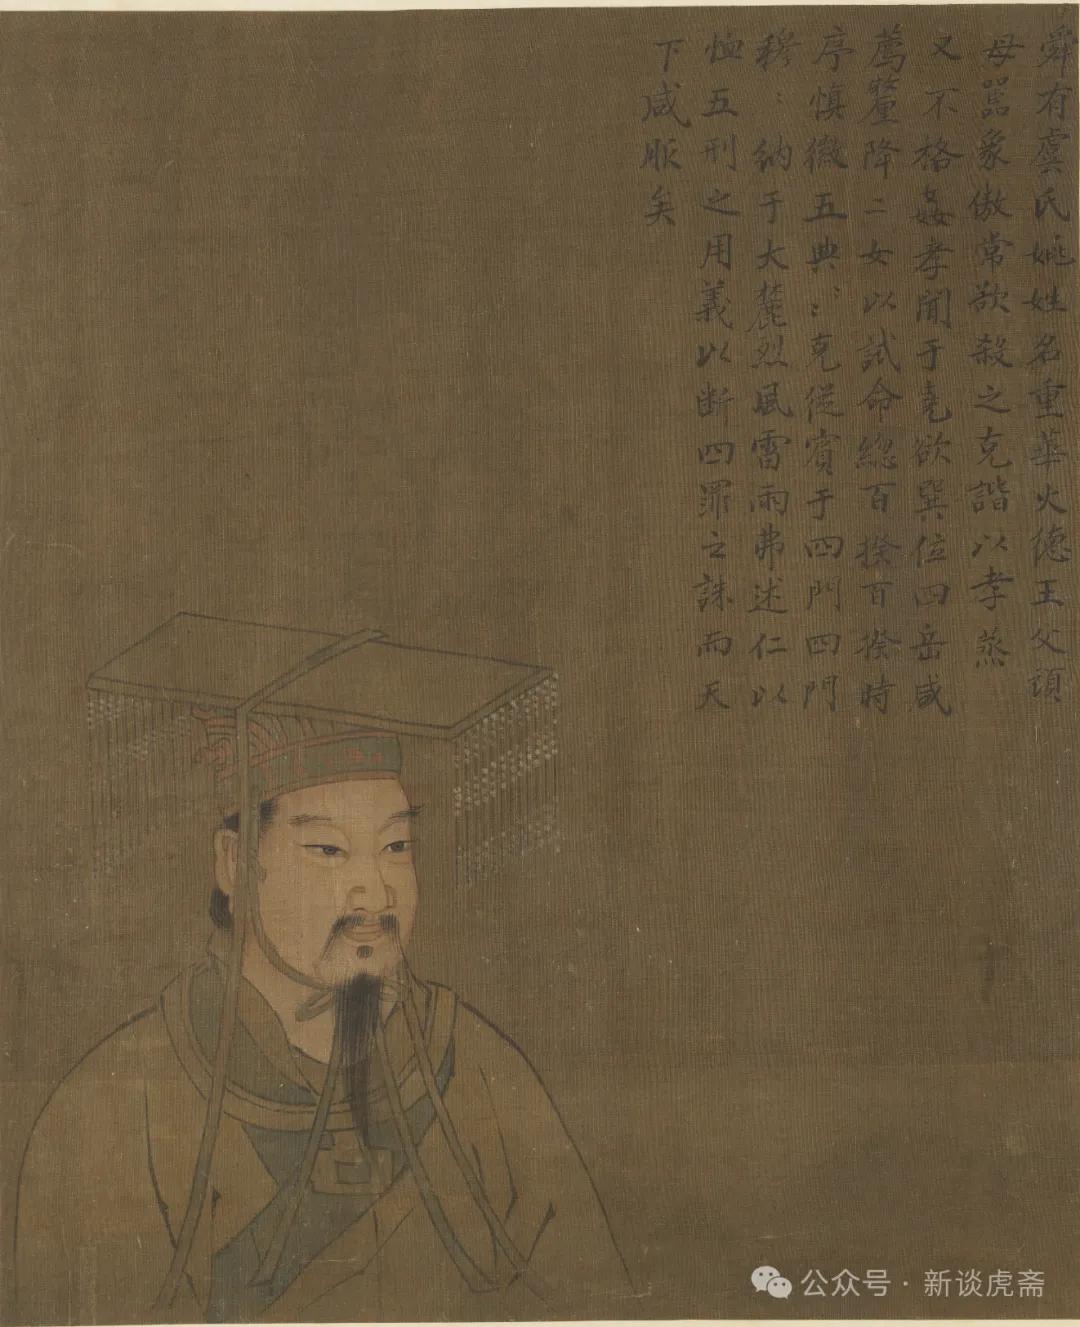 舜有虞氏姚姓名重華火德王父頑
母嚚象傲常欲殺之克諧以孝烝
又不格姦孝聞于堯欲巽位四岳咸
薦釐降二女以試命總百揆百揆時
序慎徽五典〻克從賓于四門四門
穆〻納于大麓烈風雷雨弗迷仁以
恤五刑之用義以斷四罪之誅而天
下咸服矣
公众号·新谈虎斋